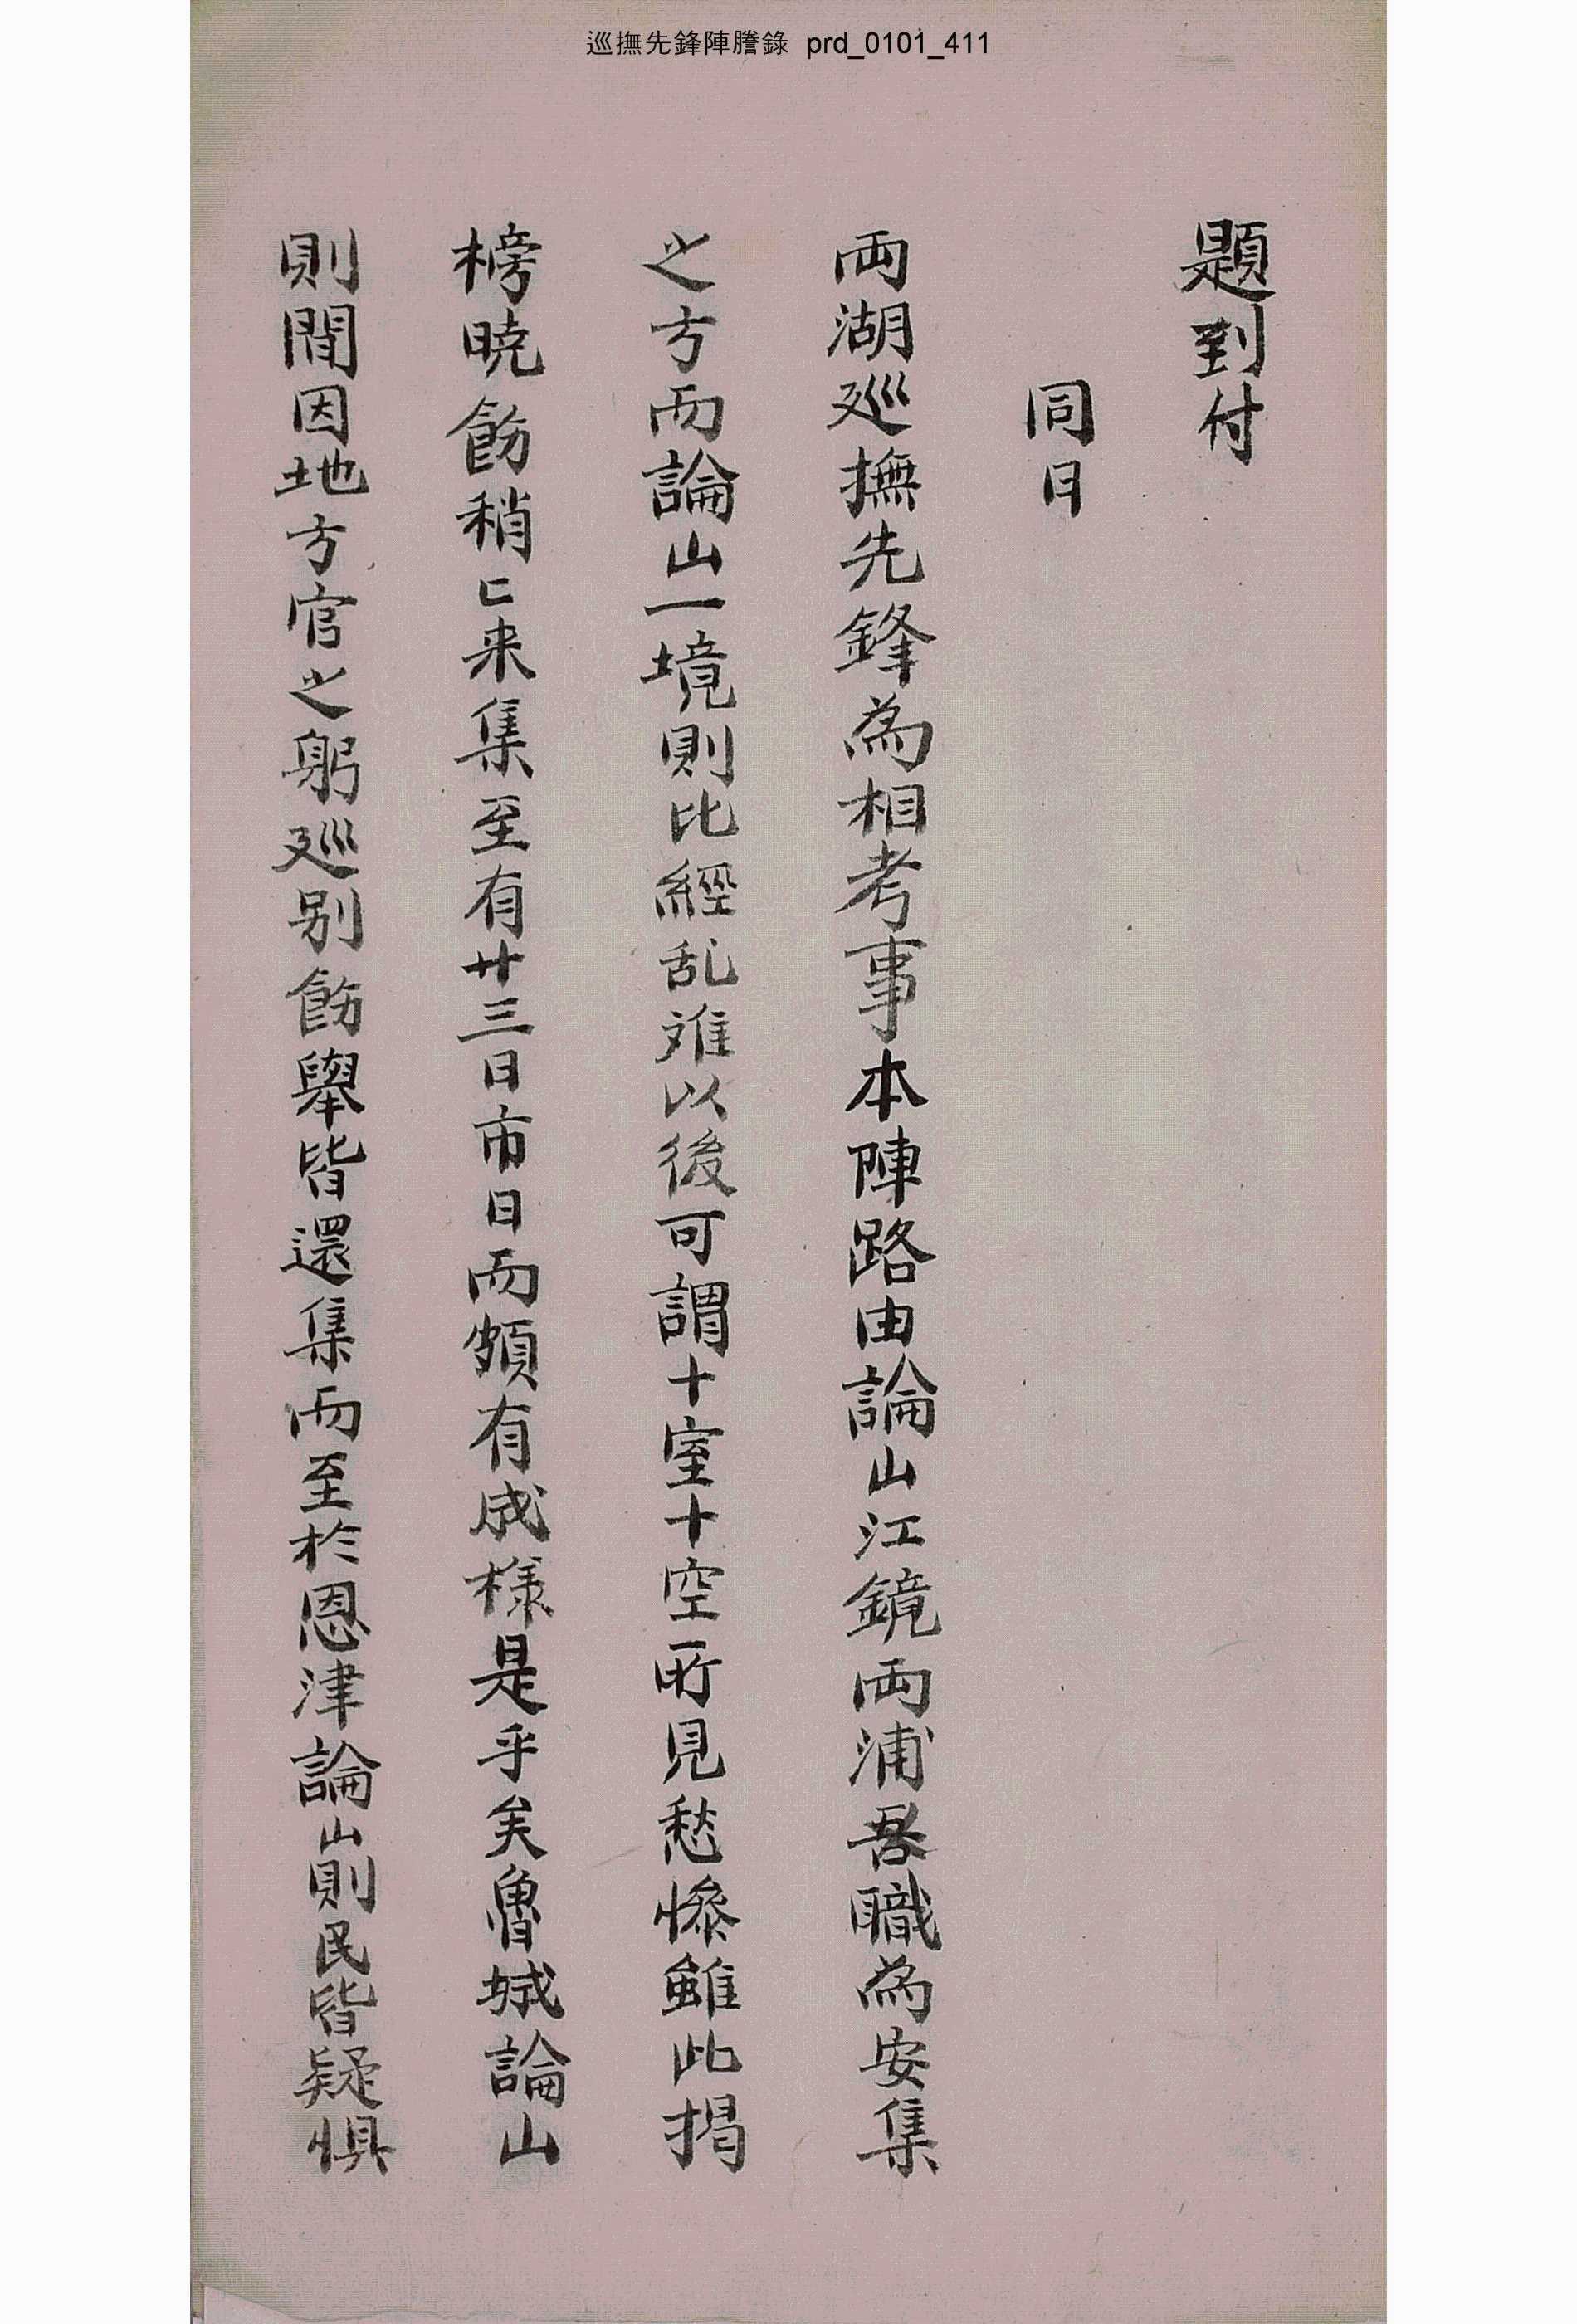 巡撫先鋒陣謄錄 prd_0101_411
題到付
同日
両湖廵撫先鋒為相考事本陣路由論山江鏡両浦吾職為安集
之方而論山一境則比經乱难以後可謂十室十空所見愁惨雖此揭
榜暁飭稍匕来集至有廿三日市日而頗有成樣是乎矣魯城論山
則間因地方官之躬廵别飭舉皆還集而至於恩津論山則民皆疑惧